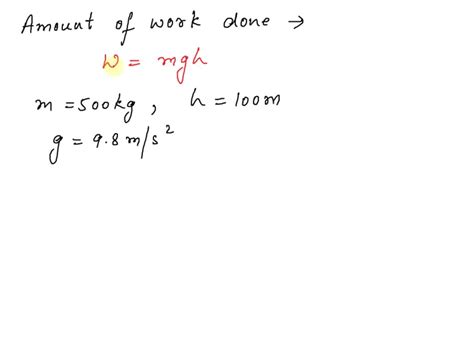 Amount of work done →
W = mgh
m = 500kg , h = 100m
g = 9.8 m/s²